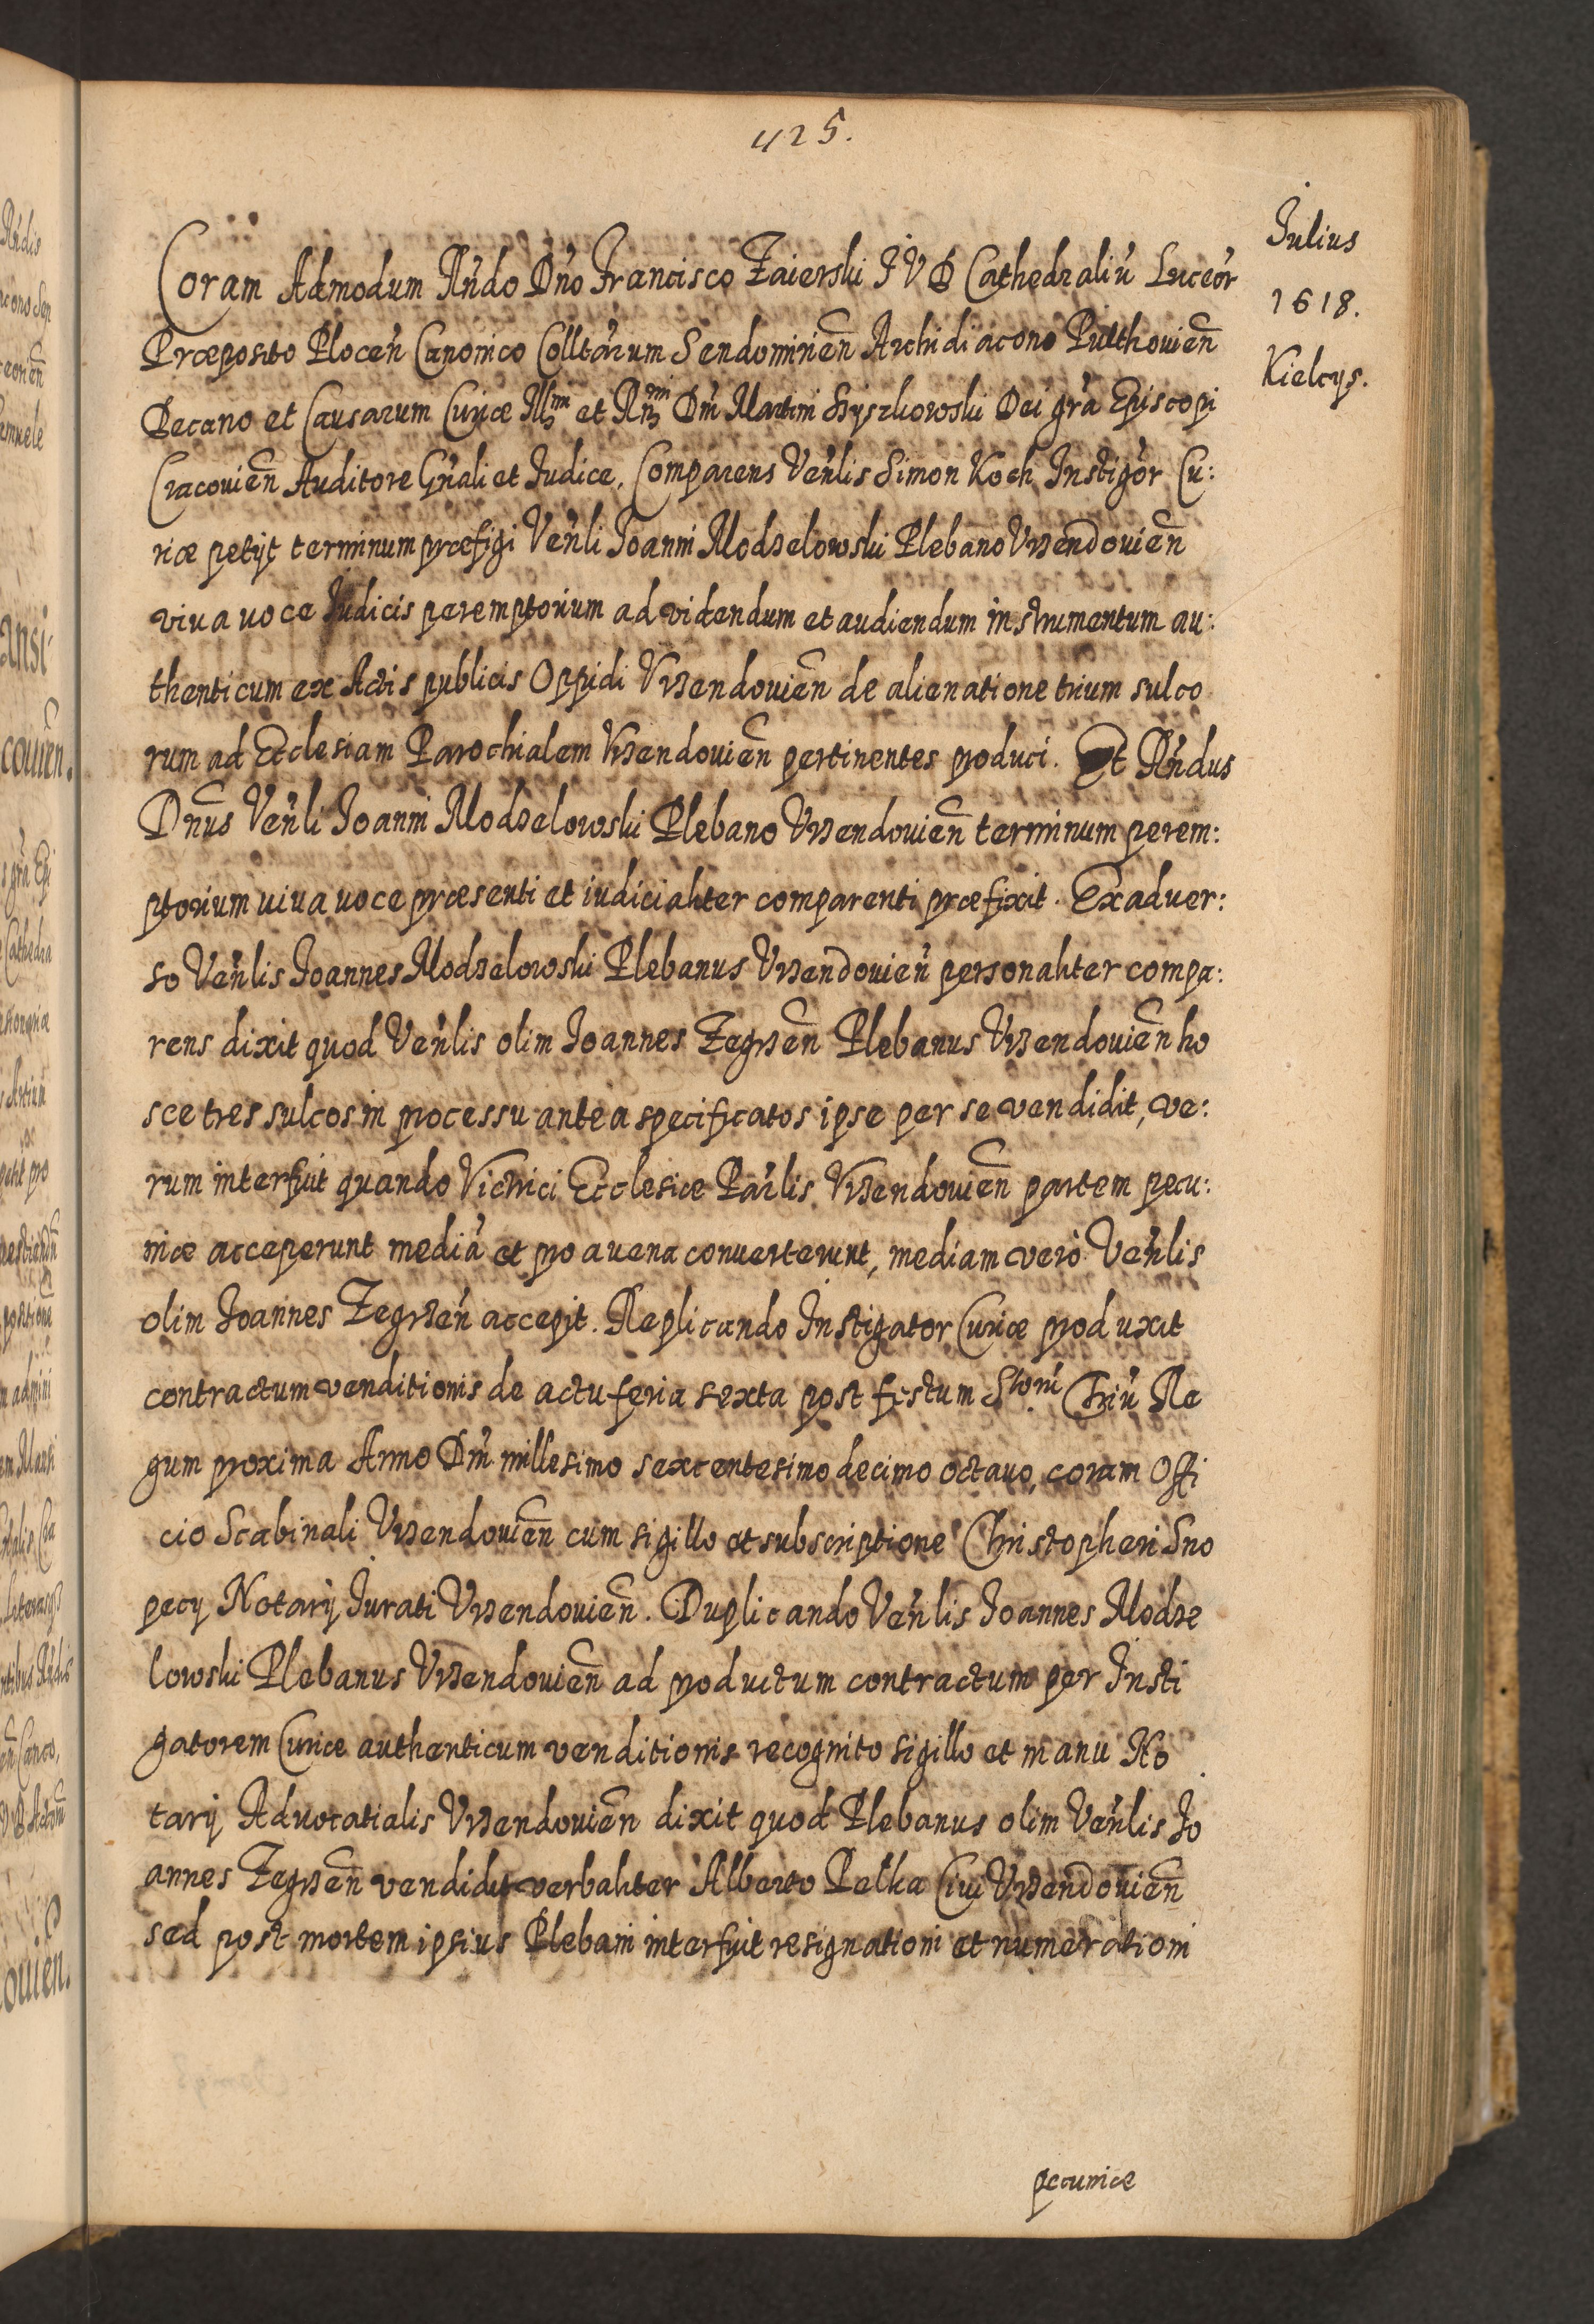 425.
Julius
1618.
Kielcys.
Coram Admodum Rńdo Dńo Francisco Zaierski J V D Cathedraliũ Luceoŕ
Præposito Plocen̄ Canonico Colltārum Sendomirien̄ Archidiacono Pulthouien̄
Decano et Causarum Curiæ Illmi et Rmi Dn̄i Martini Szyszkowski Dei grã Episcopi
Cracouien̄ Auditore Gn̄ali et Judice. Comparens Ven̄lis Simon Koch Instigŏr Cu:
riæ petijt terminum præfigi Ven̄li Joanni Modzelowski Plebano Vrzendouien̄
viua uoce Judicis peremptorium ad videndum et audiendum instrumentum au:
thenticum ex Actis publicis Oppidi Vrzendouien̄ de alienatione trium sulco
rum ad Ecclesiam Parochialem Vrzendouien̄ pertinentes produci. Et Rńdus
Dn̄us Ven̄li Joanni Modzelowski Plebano Vrzendouien̄ terminum perem:
ptorium uiua uoce præsenti et iudicialiter comparenti præfixit. Exaduer:
so Ven̄lis Joannes Modzelowski Plebanus Vrzendouien̄ personaliter compa:
rens dixit quod Ven̄lis olim Joannes Zegrzen̄ Plebanus Vrzendouien̄ ho
sce tres sulcos in processu antea specificatos ipse per se vendidit, ve:
rum interfuit quando Victrici Ecclesiæ Par̄lis Vrzendouien̄ partem pecu:
niæ acceperunt mediã et pro auena conuerterunt, mediam verò Ven̄lis
olim Joannes Zegrzen̄ accepit. Replicando Instigator Curiæ produxit
contractum venditionis de actu feria sexta post festum Stoŕu Triũ Re
gum proxima Anno Dn̄i millesimo sexcentesimo decimo octauo, coram Offi
cio Scabinali Vrzendouien̄ cum sigillo et subscriptione Christopheri Sno
pecy Notarij Jurati Vrzendouien̄. Duplicando Ven̄lis Joannes Modze
lowski Plebanus Vrzendouien̄ ad productum contractum per Insti
gatorem Curiæ authenticum venditionis recognito sigillo et manu No
tarij Aduocatialis Vrzendouien̄ dixit quod Plebanus olim Ven̄lis Jo
annes Zegrzen̄ vendidit verbaliter Alberto Pelka Ciui Vrzendouien̄
sed post mortem ipsius Plebani interfuit resignationi et numerationi
pecuniæ